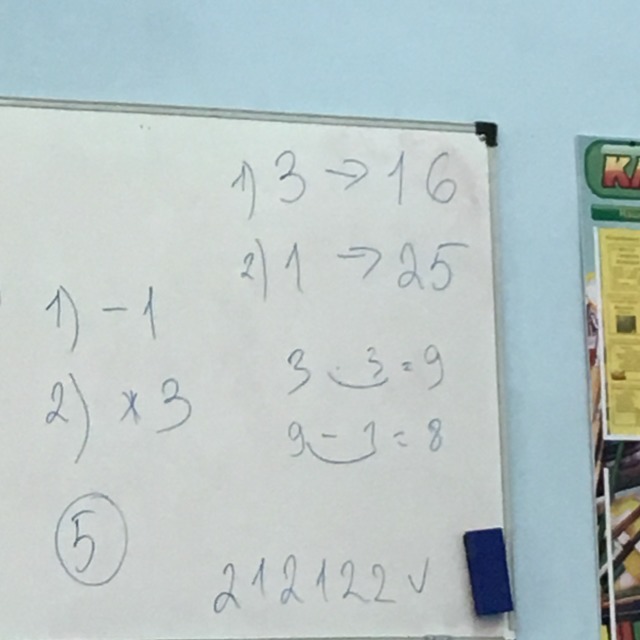 1) 3 → 16
2) 1 → 25
1) - 1
2) × 3
3 · 3 = 9
9 - 1 = 8
5
212122 ✓